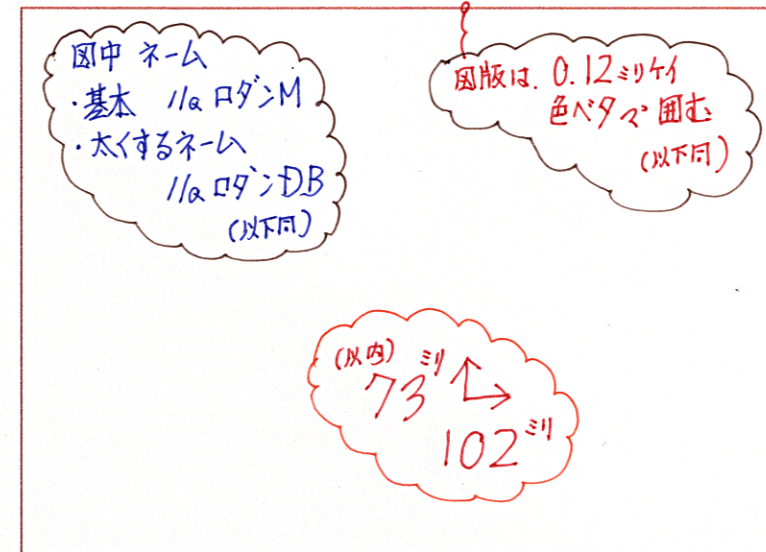 図中 ネーム
・基本 11Q ロダンM
・太くするネーム
11Q ロダンDB
(以下同)
図版は、0.12ミリケイ
色ベタで囲む
(以下同)
(以内)
73ミリ
102ミリ